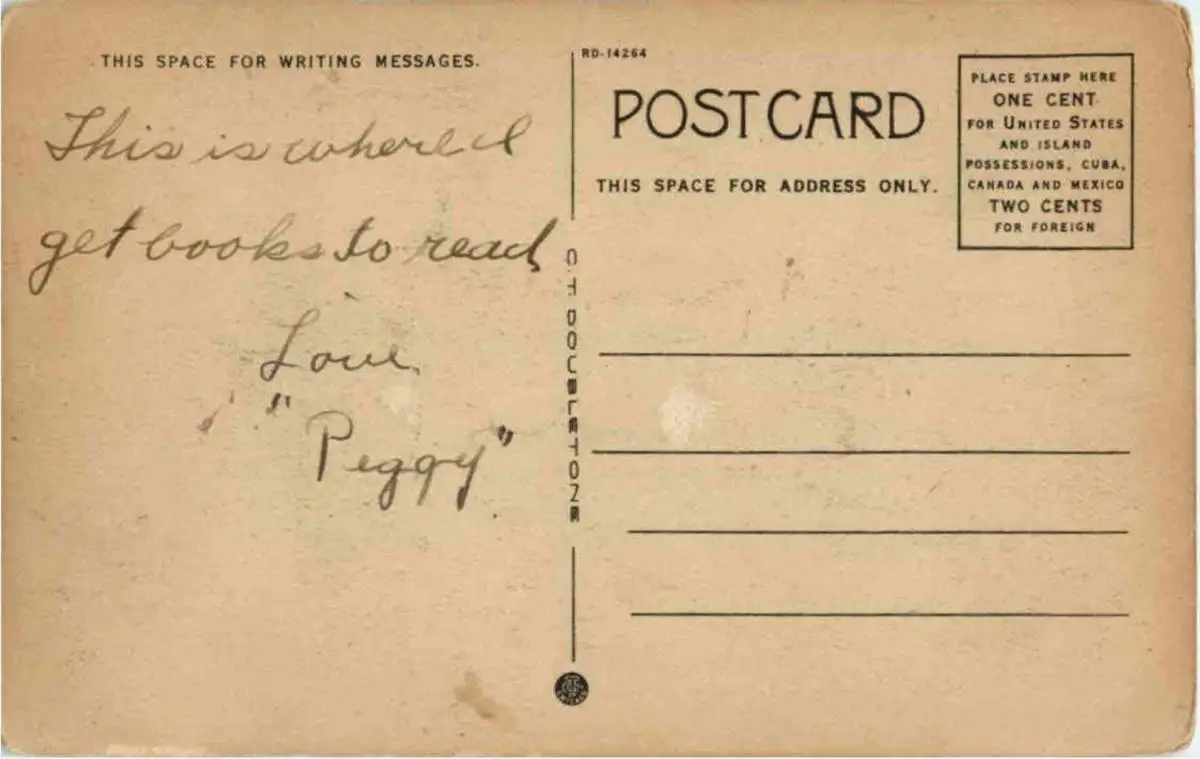 THIS SPACE FOR WRITING MESSAGES.
This is where I
get books to read
Love
"Peggy"
C.T. DOUBLETONE
RD-14264
POSTCARD
THIS SPACE FOR ADDRESS ONLY.
PLACE STAMP HERE
ONE CENT
FOR UNITED STATES
AND ISLAND
POSSESSIONS, CUBA,
CANADA AND MEXICO
TWO CENTS
FOR FOREIGN